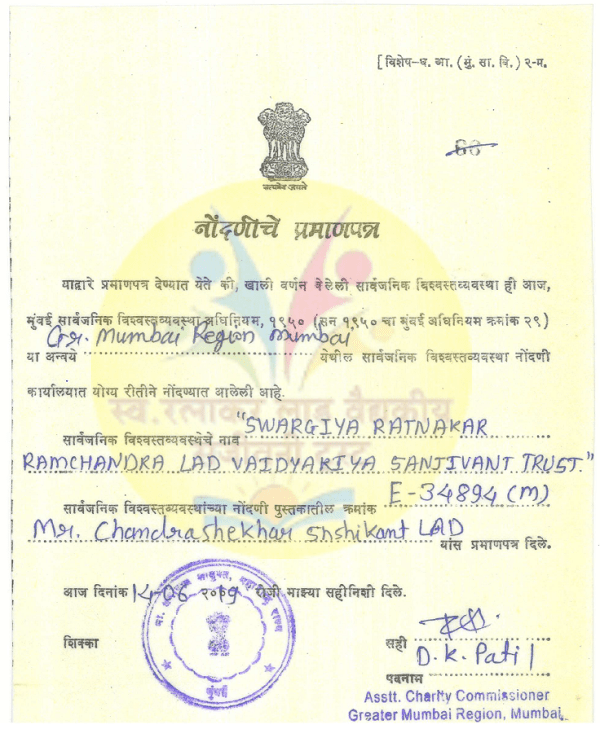 [ विशेप-ध. आ. (मुं. सा. वि.) २-म.
66
सत्यमेव जयते
नोंदणीचे प्रमाणपत्र
याद्वारे प्रमाणपत्र देण्यात येते की, खाली वर्णन केलेली सार्वजनिक विश्वस्तव्यवस्था ही आज,
मुंबई सार्वजनिक विश्वस्तव्यवस्था अधिनियम, १९५० (सन १९५० चा मुंबई अधिनियम क्रमांक २९)
Gr. Mumbai Region Mumbai
या अन्वये येथील सार्वजनिक विश्वस्तव्यवस्था नोंदणी
कार्यालयात योग्य रीतीने नोंदण्यात आलेली आहे.
स्व. रत्नाकर लाड वैद्यकीय
संजीवनी ट्रस्ट
"SWARGIYA RATNAKAR
सार्वजनिक विश्वस्तव्यवस्थेचे नाव
RAMCHANDRA LAD VAIDYAKIYA SANJIVANI TRUST."
सार्वजनिक विश्वस्तव्यवस्थांच्या नोंदणी पुस्तकातील क्रमांक E-34894 (M)
Mr. Chandrashekhar Shshikant LAD यांस प्रमाणपत्र दिले.
आज दिनांक 14-06-2019 रोजी माझ्या सहीनिशी दिले.
शिक्का
मुंबई
सही
D. K. Patil
पदनाम
Asstt. Charity Commissioner
Greater Mumbai Region, Mumbai.